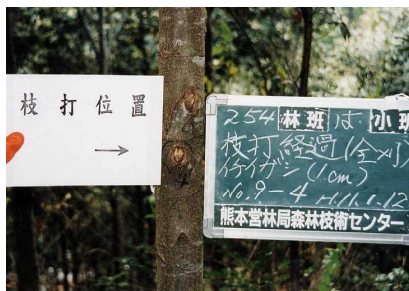 枝打位置
→
254 林班 は 小班
枝打経過(全刈)
イチイガシ(1cm)
No.9-4 H11.1.12
熊本営林局森林技術センター